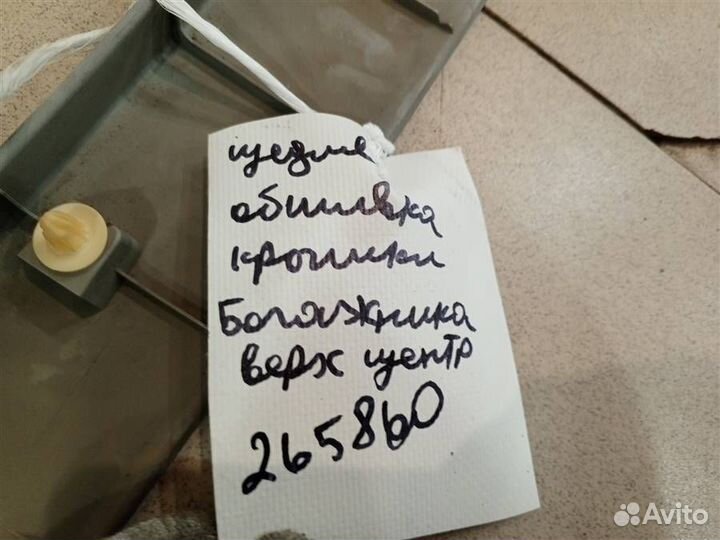 обшивка
крышки
Богожника
верх центр
265860
Avito